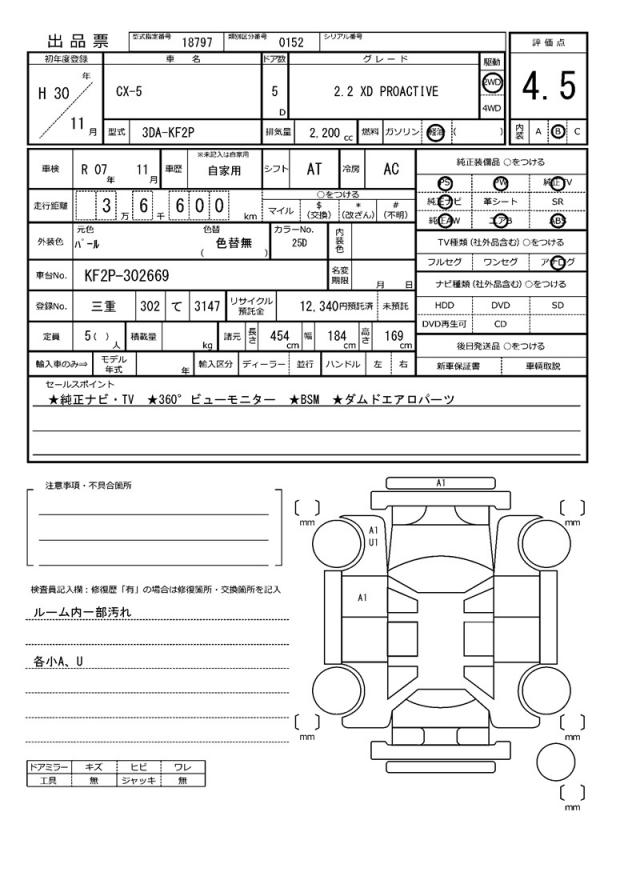 出品票 型式指定番号 18797 類別区分番号 0152 シリアル番号
初年度登録 車名 ドア数 グレード 駆動 評価点
H 30 年 11 月 CX-5 5 D 2.2 XD PROACTIVE 2WD 4WD 4.5
型式 3DA-KF2P 排気量 2,200 cc 燃料 ガソリン 軽油 ( ) 内装 A B C
車検 R 07 年 11 月 車歴 ※未記入は自家用 自家用 シフト AT 冷房 AC 純正装備品 ○をつける
PS PW 純正TV
走行距離 3 万 6 千 6 0 0 km ○をつける 純正ナビ 革シート SR
マイル $ (交換) * (改ざん) # (不明) 純正AW エアB ABS
外装色 元色 パール 色替 ( 色替無 ) カラーNo. 25D 内装色 TV種類 (社外品含む) ○をつける
フルセグ ワンセグ アナログ
車台No. KF2P-302669 名変期限 月 日 ナビ種類 (社外品含む) ○をつける
登録No. 三重 302 て 3147 リサイクル預託金 12,340円預託済 未預託 HDD DVD SD
DVD再生可 CD
定員 5 ( ) 人 積載量 kg 諸元 長さ 454 cm 幅 184 cm 高さ 169 cm 後日発送品 ○をつける
輸入車のみ⇒ モデル年式 年 輸入区分 ディーラー 並行 ハンドル 左 右 新車保証書 車輌取説
セールスポイント
★純正ナビ・TV ★360°ビューモニター ★BSM ★ダムドエアロパーツ
注意事項・不具合箇所
A1
mm mm
A1
U1
検査員記入欄：修復歴「有」の場合は修復箇所・交換箇所を記入
A1
ルーム内一部汚れ
各小A、U
mm mm
ドアミラー キズ ヒビ ワレ
工具 無 ジャッキ 無
mm